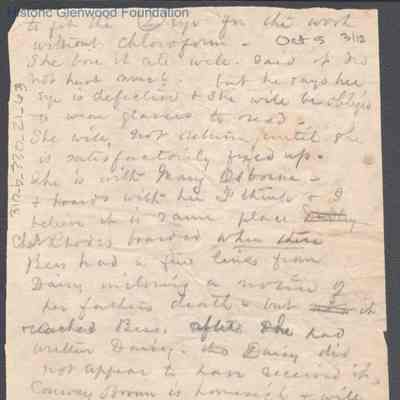 Historic Glenwood Foundation
to fix the eye for the work
without chloroform -
Oct 5 3/12
She bore it all well. said it did
not hurt much but he says her
eye is defective & She will be obliged
to wear glasses to read -
She will not return until she
is satisfactorily fixed up -
She is with Mary Osborne -
& boards with her I think & I
believe it is same place
Rhodes boarded when there
Bess had a few lines from
Daisy enclosing a notice of
her fathers death & but it
reached Bess after She had
written Daisy. & Daisy did
not appear to have received it.
Conway Brown is homesick & will